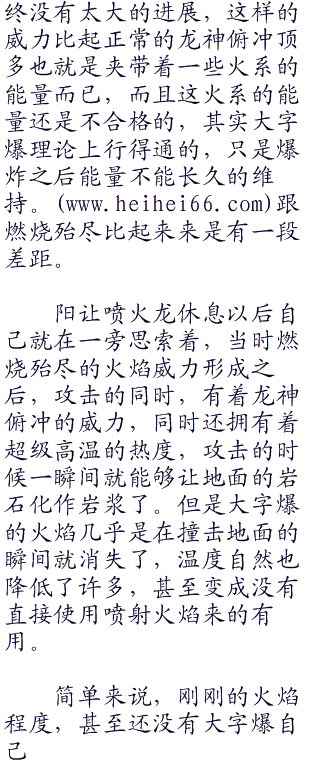 终没有太大的进展，这样的
威力比起正常的龙神俯冲顶
多也就是夹带着一些火系的
能量而已，而且这火系的能
量还是不合格的，其实大字
爆理论上行得通的，只是爆
炸之后能量不能长久的维
持。(www.heihei66.com)跟
燃烧殆尽比起来来是有一段
差距。
阳让喷火龙休息以后自
己就在一旁思索着，当时燃
烧殆尽的火焰威力形成之
后，攻击的同时，有着龙神
俯冲的威力，同时还拥有着
超级高温的热度，攻击的时
候一瞬间就能够让地面的岩
石化作岩浆了。但是大字爆
的火焰几乎是在撞击地面的
瞬间就消失了，温度自然也
降低了许多，甚至变成没有
直接使用喷射火焰来的有
用。
简单来说，刚刚的火焰
程度，甚至还没有大字爆自
己